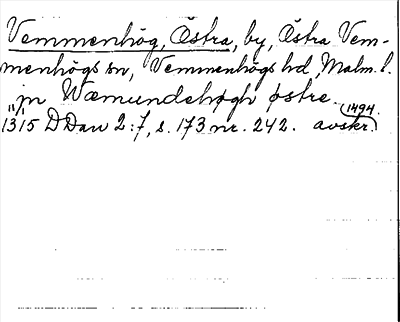 Vemmenhög, Östra, by, Östra Vem-
menhögs sn, Vemmenhögs hd, Malm. l.
"jn Wæmundehøgh østre.
1315 DDan 2:7, s. 173 nr. 242. avskr. 1494.